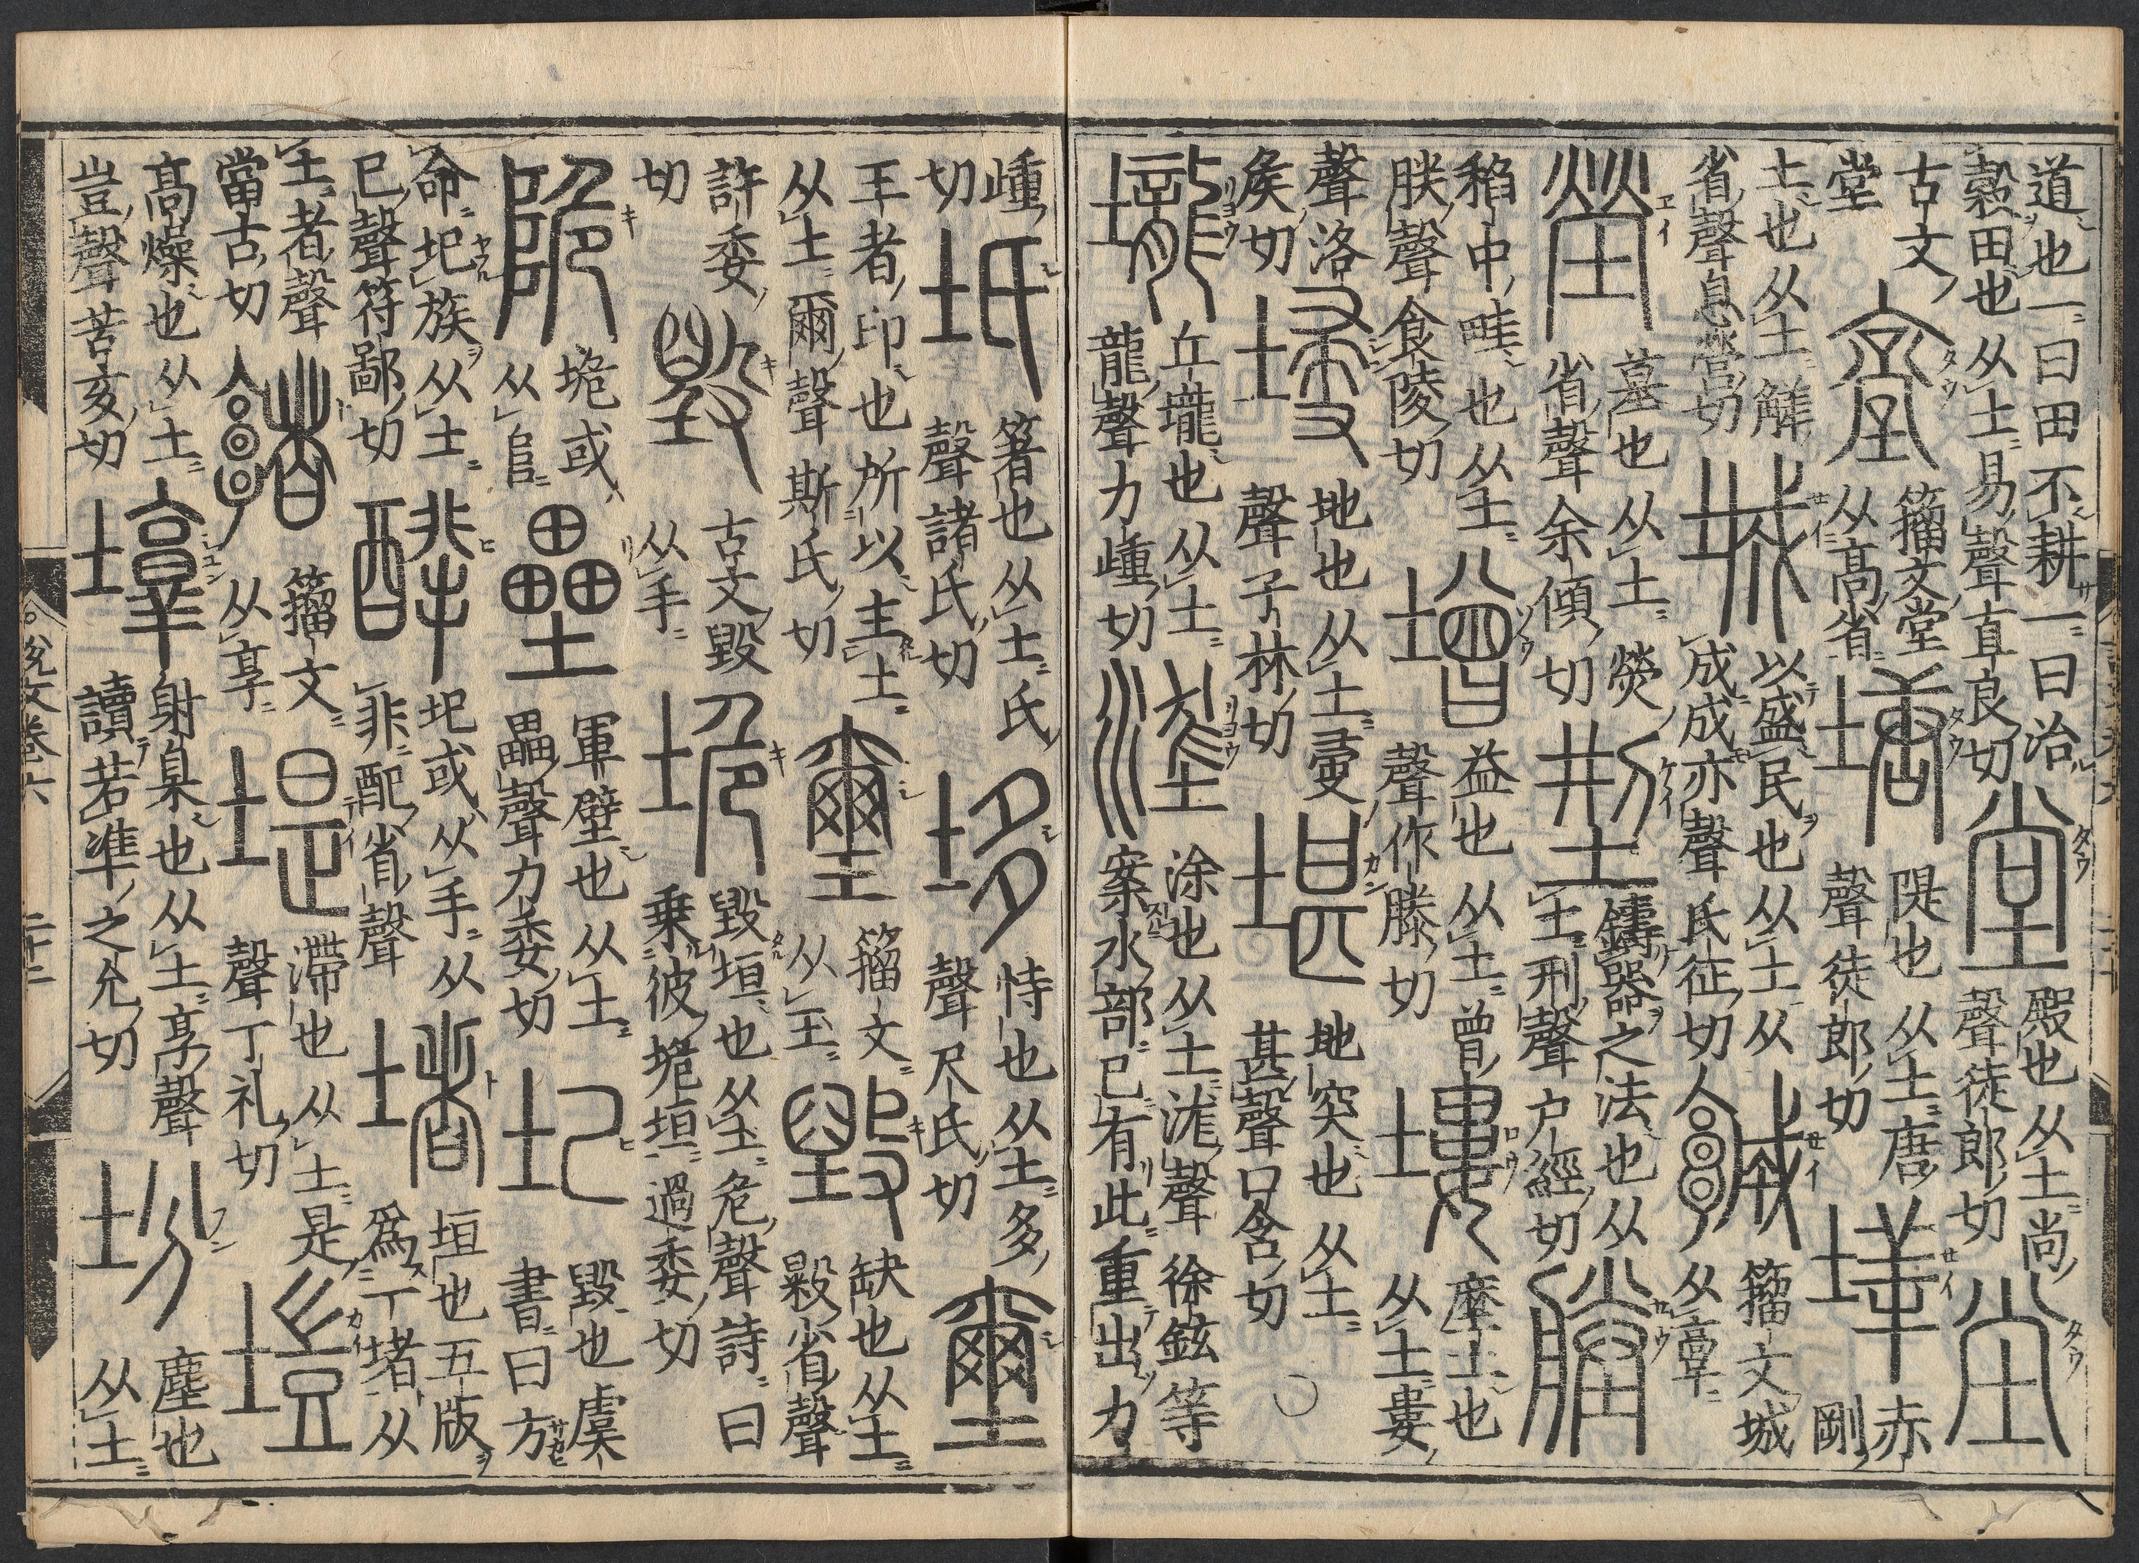 道也一曰田不耕一曰治糓田也从土昜聲直良切 堂 殿也从土尚聲徒郎切 坣
古文堂 籒文堂从髙省 塘 隄也从土唐聲徒郎切 垶 赤剛
土也从土觧省聲息營切 城 以盛民也从土从成成亦聲氏征切 籒文城从𩫏
塋 墓也从土熒省聲余傾切 型 鑄器之法也从土刑聲户經切 塍
稻中畦也从土朕聲食陵切 增 益也从土曾聲作滕切 塿 塺土也从土婁
聲洛矦切 埐 地也从土𠬶聲子林切 堪 地突也从土甚聲口含切
壠 丘壠也从土龍聲力歱切 涂也从土浝聲徐鉉等案水部已有此重出力
歱切 坻 箸也从土氏聲諸氏切 垑 恃也从土多聲尺氏切 壐
王者印也所以主土从土爾聲斯氏切 璽 籒文从玉 毀 缺也从土毇省聲
許委切 古文毀从手 垝 毀垣也从土危聲詩曰乗彼垝垣過委切
陒 垝或从𨸏 壘 軍壁也从土畾聲力委切 圮 毀也虞書曰方
命圮族从土己聲符鄙切 圮或从手从非配省聲 堵 垣也五版爲一堵从
土者聲當古切 籒文从𩫏 堤 滯也从土是聲丁礼切 塏
髙燥也从土豈聲苦亥切 埻 射臬也从土𦎫聲讀若準之允切 坋 塵也从土
説文卷六 二十二